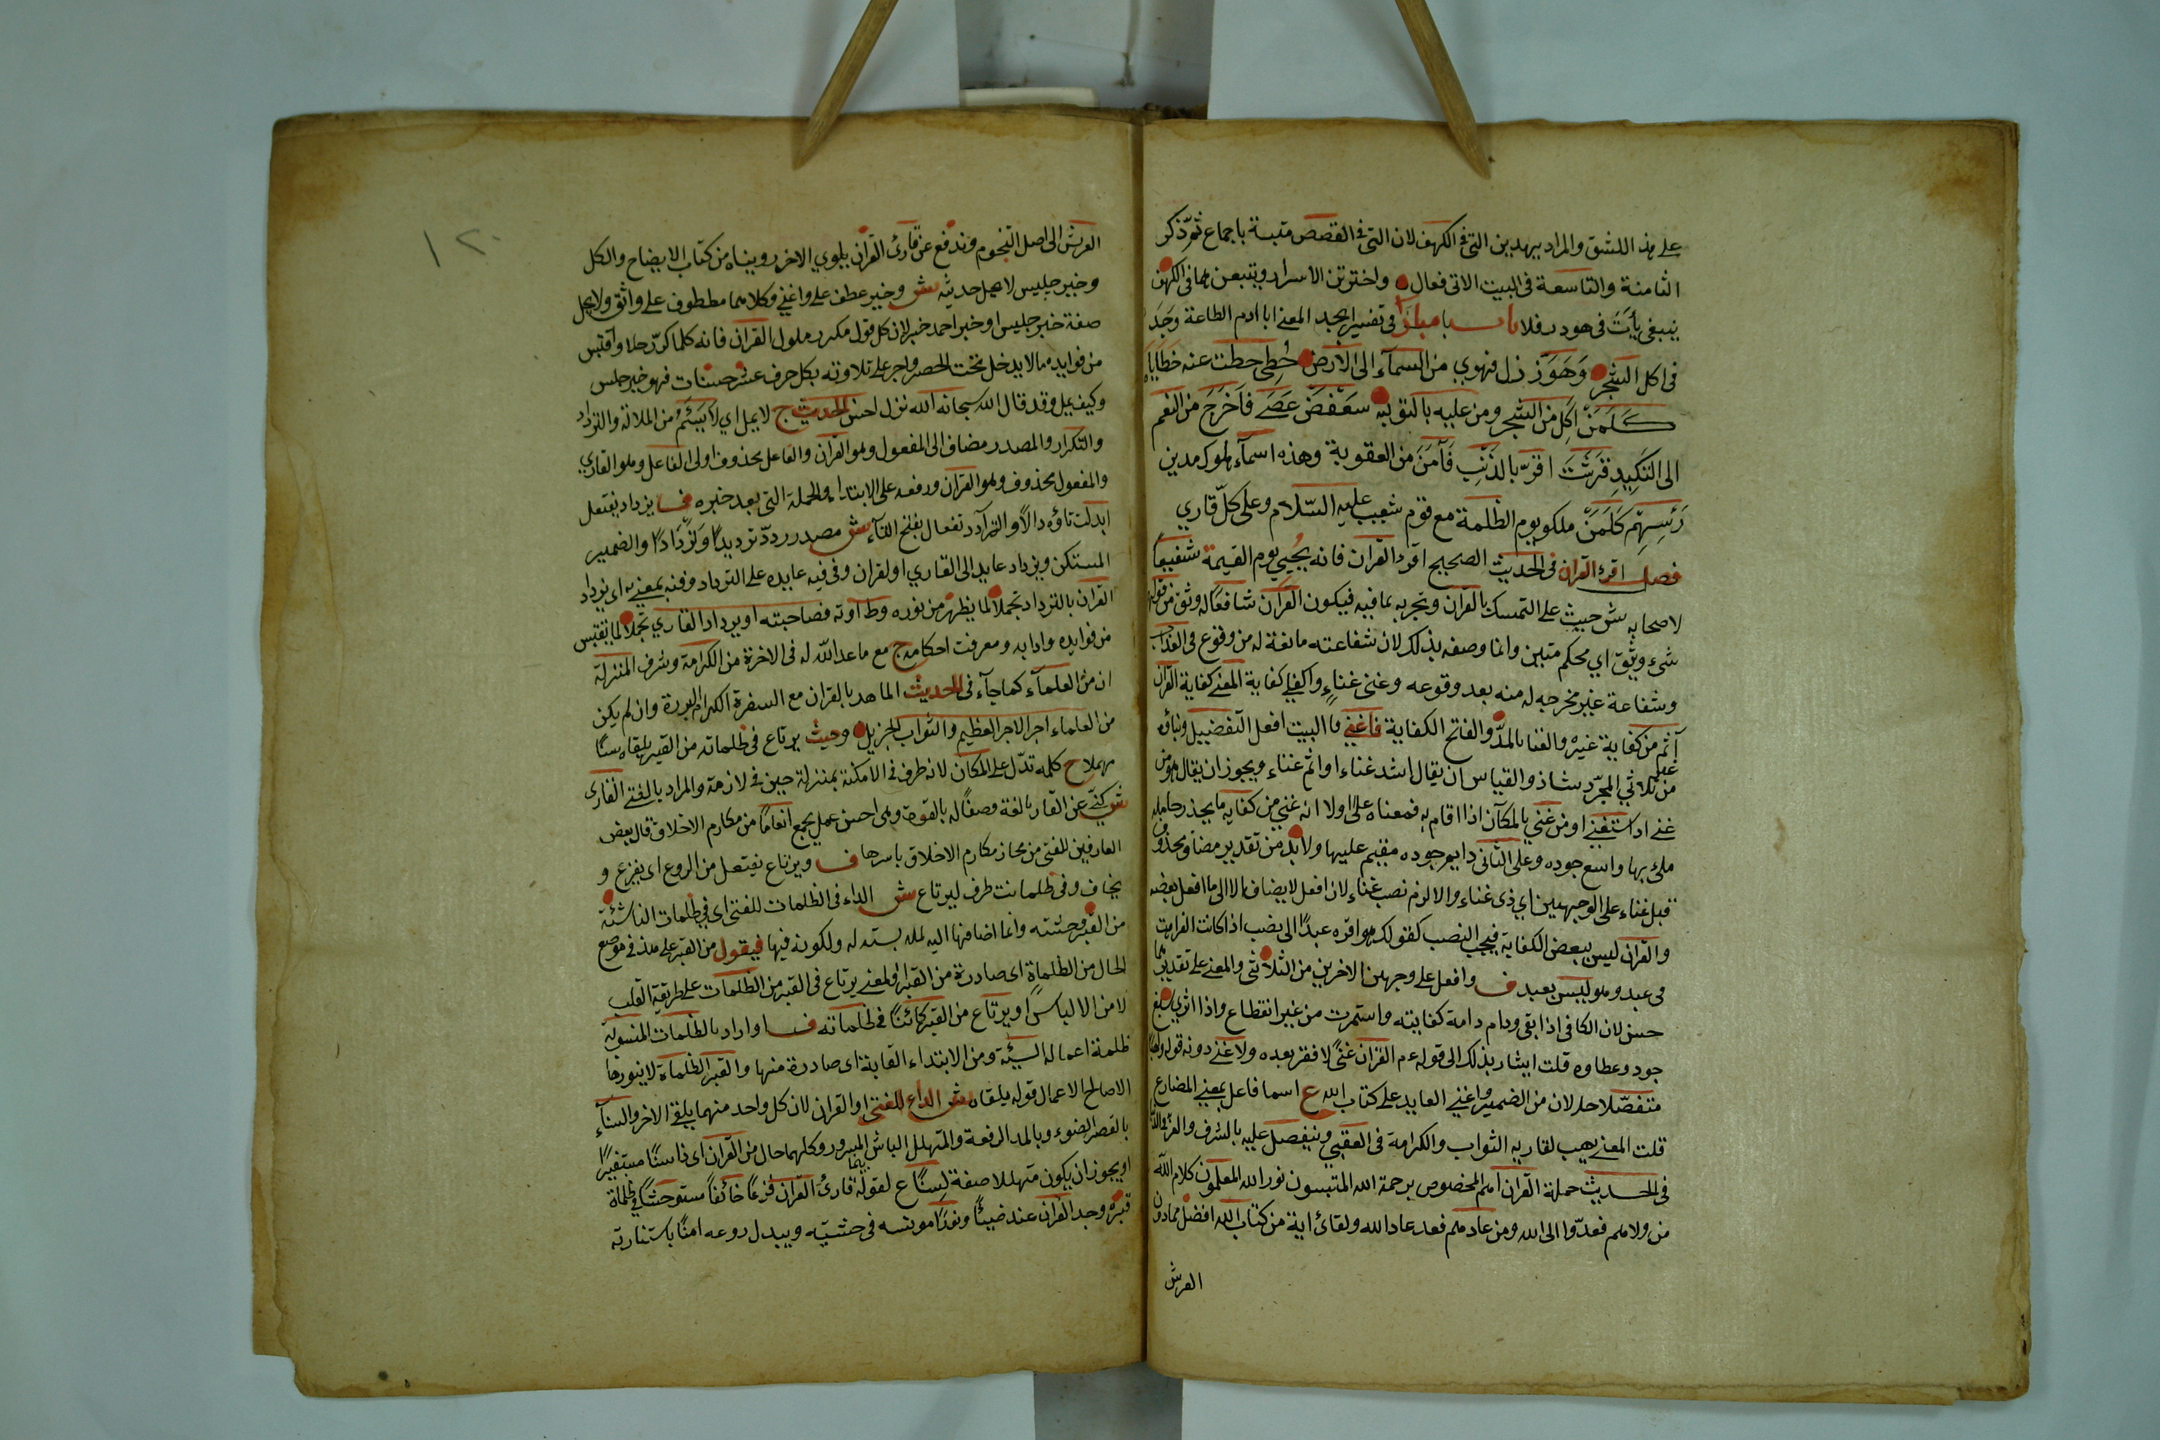 على هذا اللشق والمراد بهدين التي في الكهف لان التي في القصص متبسة باجماع ثم ذكر
الثامنة والتاسعة في البيت الاتي فعال واخترتن الاسراد ويتبعن مما في الكهف
ينبغي يأت في هود رفلا با في تفسير ابجد المعنى ابا ادم الطاعة وجد
في اكل الشجر وهوز زل فهوي من السمآء الى الارض حطي حطت عنه خطاياه
كلمن اكل من الشجر ومن عليه بالتوبه سعفض عصى فاخرج من النعم
الى التكيد قرشت اقر بالذنب فآمن من العقوبة وهذه اسمآء لملوك مدين
رئسهم كلمن ملكو يوم الظلمة مع قوم شعيب عليه السلام وعلى كل قاري
فصل اقرء القرآن في الحديث الصحيح اقرء القرآن فانه يجيي يوم القيمة شفيعا
لاصحابه ش حيث على التمسك بالقرآن وتجربه بما فيه فيكون القرآن شافعا له وثق من قوله
شىء وثيق اي محكم متبين وانما وصفه بذلك لان شفاعته مانعة له من وقوع في العذاب
وشفاعة غير مخرجه له منه بعد وقوعه وغنى غناء واكفى كفاية المعنى كفاية القرآن
أتم من كفاية غيره والغنا بالمد والفتح الكفاية فاغني وا البيت افعل التفضيل وبناؤه
من ثلاثي المجرد شاذ والقياس ان يقال اشد غناء او اتم غناء ويجوز ان يقال هو من
غنى اذا استغنى او من غني بالمكان اذا اقام به فمعناه على اولا انه غني من كفايه ما يجذ رحامله
ملئ بها واسع جوده وعلى الثاني دايم جوده مقيم عليها ولابد من تقدير مضاف محذوف
قبل غناء على الوجهين اي ذي غناء والا لزم نصب غناء لان افعل لا يضاف الا الى ما افعل بعضه
والقرآن ليس ببعض الكفاية فيجب النصب كقولك هو افره عبدا الى نصب اذا كانت الفراهت
في عبد وهو ليس بعبد ف وافعل على وجهين الاخرين من الثلاثي والمعنى على تقديرهما
حسن لان الكافي اذا بقى ودام دامة كفايته واستمرت من غير انقطاع واذا اثري
جود وعطاوه قلت ايشار بذلك الى قوله ءم القرآن غنى لا فقر بعده ولا غنى دونه قوله واهبا
متفضلا حلان من الضمير واغني العايد على كتاب الله ع اسما فاعل بمعنى المضارع
قلت المعنى يهب لقاريه الثواب والكرامة في العقبي ويتفضل عليه بالشرف والعز في الدنيا
في الحديث حملة القرآن هم المخصوص برحمة الله المتبسون نور الله المعلمون كلام الله
من ولاهم فعدوا الى الله ومن عادهم فعد عاد الله ولقائ اية من كتاب الله افضل مما دون
العرش
١٢٠
العرش الى اصل التخوم وندفع عن قارئ القرآن بلوي الاخر رويناه من كتاب الايضاح والكل
وخير جليس لا يمل حديثه ش وخير عطف على واغني وكلاهما مطلوف على واثق ولا يمل
صفة خير جليس او خبر احمد خبر لان كل قول مكرر مملول القرآن فانه كلما كرر حلا وآقتبس
من فوايده ما لا يدخل تحت الحصر واجر على تلاوته بكل حرف عشر حسنات فهو خير جلس
وكيف يمل وقد قال الله سبحانه الله نزل احسن الحديث ج لا يمل اي لا يسئم من الملالة والترداد
والتكرار والمصدر مضاف الى المفعول وهو القرآن والفاعل محذوف اولى الفاعل وهو القاري
والمفعول محذوف وهو القرآن ورفعه على الابتداء والجملة التي بعد خبره ف يزداد يفتعل
ابدلت تاؤه دالا والترآدد تفعال بفتح التآء ش مصدر ردد ترديدا وتردادا والضمير
المستكن ويزداد عايد الى القاري او لقران وفي فيه عايده على الترداد وفيه بمعنى به اي يزداد
القرآن بالترداد تجملا لما يظهر من نوره وطلاوته فصاحبته او يزداد القاري تجملا لما يقتبس
من فوايده وادابه ومعرفت احكامه ج مع ماعد الله له في الاخرة من الكرامة وشرف المنزلة
ان من العلمآء كما جآء في الحديث الماهد بالقرآن مع السفرة الكرام البررة وان لم يكن
من العلماء اجر الاجر العظيم والثواب الجزيل وحيث يرتاع في ظلماته من القبر يلقاه سنا
مهملا ح كلمه تدل على المكان لانه ظرف في الامكنة بمنزلة حين في لازمة والمراد بالفتى القارى
ش كني عن القار بالغة وصفا له بالقوة وهي احسن عمل يجمع انعاما من مكارم الاخلاق قال بعض
العارفين للفتى من محاز مكارم الاخلاق باسرها ف ويرتاع يفتعل من الروع اى يفزع و
يخاف وفي ظلمانت ظرف ليرتاع ش الداء في الظلمات للفتى اى في ظلمات الناشئة
من القبر وحشته وانما اضافها اليه لملابسته له ولكونه فيها فيقول من القبر على هذا في موضع
الحال من الظلماة اى صادرة من القبر والمعنى يرتاع في القبر من الظلمات على طريقة القلب
لا من الالباس او يرتاع من القبر كائنا في ظلماته ف او اراد بالظلمات المنسوبة
ظلمة اعماله السيئة ومن الابتداء القابة اى صادرة منها والقبر الظلماة لا ينورها
الا صالح الاعمال قوله يلقاه ش الداع للفتى او القرآن لان كل واحد منهما يلقى الاخر والسنآء
بالقصر الضوء وبالمد الرفعة والمتهلل الباش المبرور وكلهما حال من القرآن اى ذا سنا مستفيرا
او يجوز ان يكون متهللا صفة لسنا ع لقوله قارئ القرآن فزعا خائفا مستوحشا في ظلماة
قبره وجد القرآن عند ضيئا ونورا مونسه في حشيته ويبدل روعه امنا باستنارته